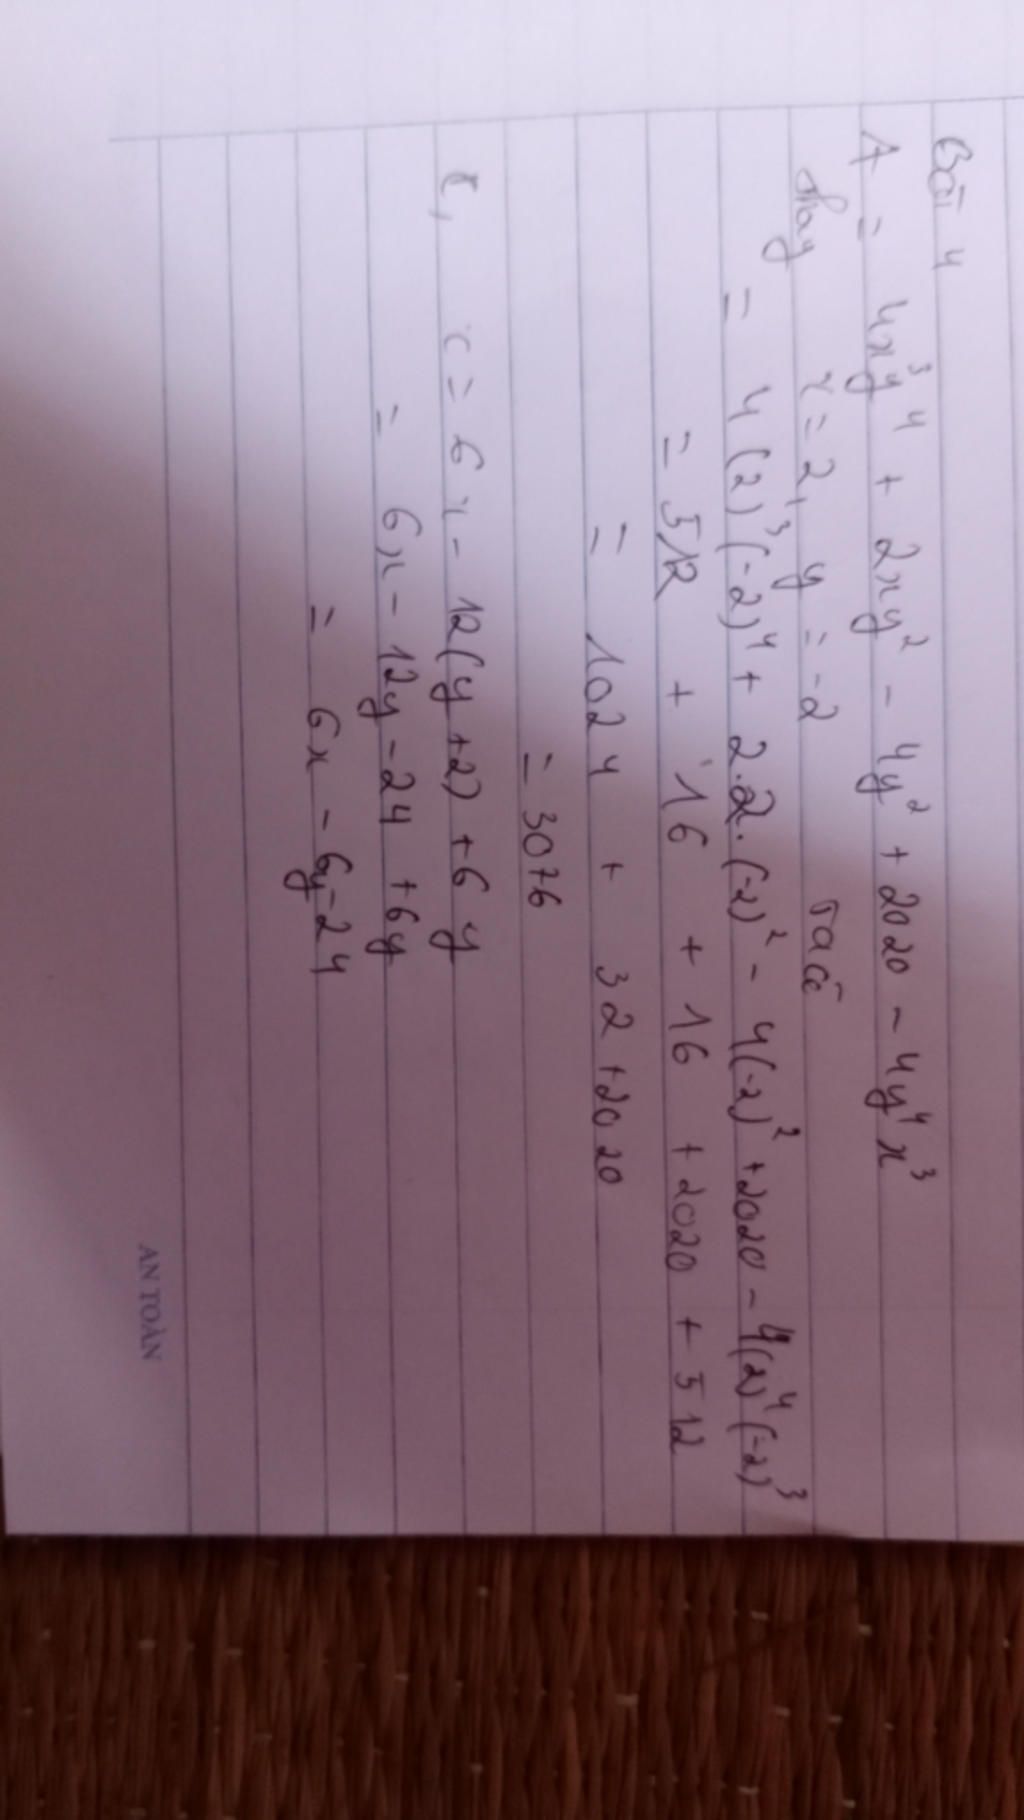 Bài 4
A = 4x³y⁴ + 2xy² - 4y² + 2020 - 4y⁴x³
thay x = 2, y = -2 ta có
= 4(2)³(-2)⁴ + 2.2.(-2)² - 4(-2)² + 2020 - 4(2)⁴(-2)³
= 512 + 16 + 16 + 2020 + 512
= 1024 + 32 + 2020
= 3076
c, c = 6x - 12(y + 2) + 6y
= 6x - 12y - 24 + 6y
= 6x - 6y - 24
AN TOÀN